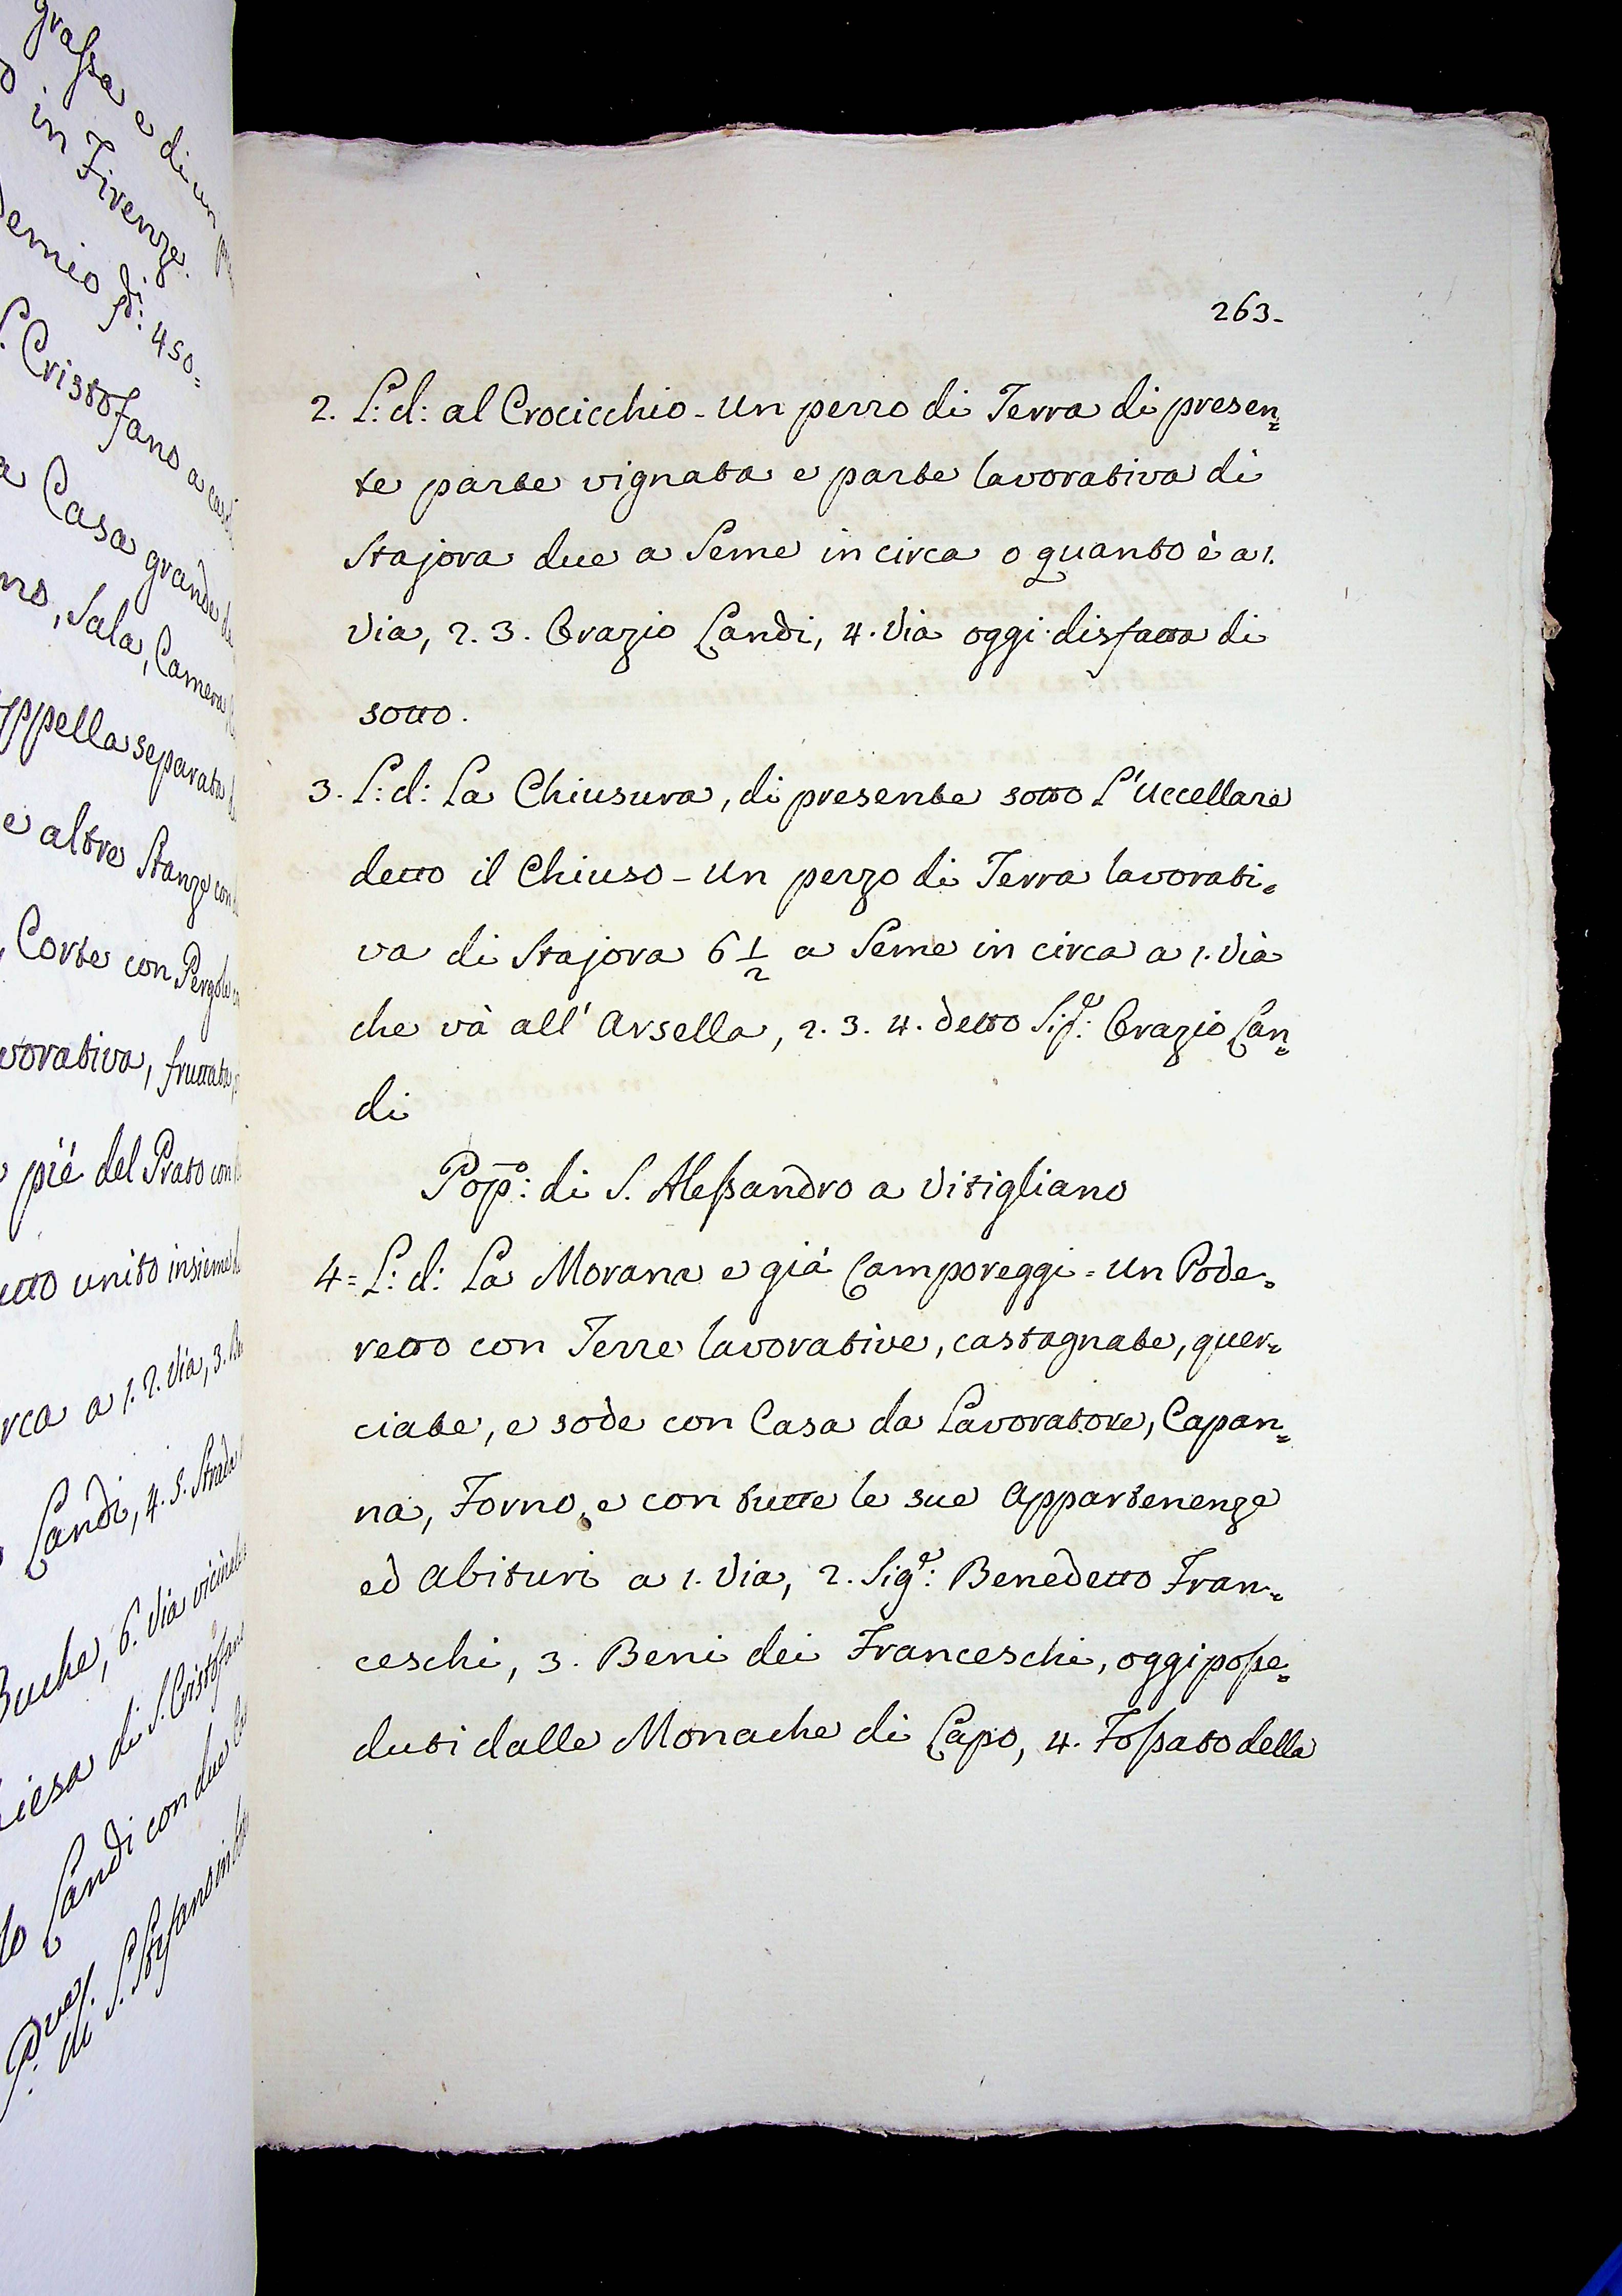 grassa e di un
in Firenze.
450=
S. Cristofano a
Casa grande
Sala, Camera
Cappella separata
e altre Stanze con
Corte con Pergole
lavorativa, fruttata
piè del Prato con
unito insieme
circa a 1. 2. Via, 3.
Landi, 4. 5. Strada
Buche, 6. Via vicinale
Chiesa di S. Cristofano
Landi con due
di S. Stefano in
263-
2. L: d: al Crocicchio - Un pezzo di Terra di presen=
te parte vignata e parte lavorativa di
Stajora due a Seme in circa o quanto è a 1.
Via, 2. 3. Orazio Landi, 4. Via oggi disfatta di
sotto.
3. L: d: La Chiusura, di presente sotto L'Uccellare
detto il Chiuso - Un pezzo di Terra lavorati=
va di Stajora 6 1/2 a Seme in circa a 1. Via
che và all' Arsella, 2. 3. 4. detto Sig.e: Orazio Lan=
di
Pop.o: di S. Alessandro a Vitigliano
4= L: d: La Morana e già Camporeggi = Un Pode=
retto con Terre lavorative, castagnate, quer=
ciate, e sode con Casa da Lavoratore, Capan=
na, Forno, e con tutte le sue Appartenenze
ed Abituri a 1. Via, 2. Sig.e: Benedetto Fran=
ceschi, 3. Beni dei Franceschi, oggi posse=
duti dalle Monache di Capo, 4. Fossato della